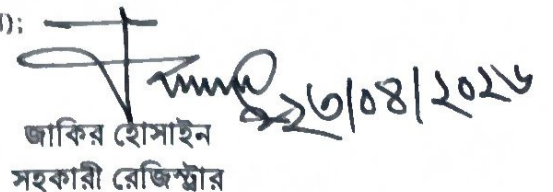 );
২৩/০৪/২০২৬
জাকির হোসাইন
সহকারী রেজিস্ট্রার